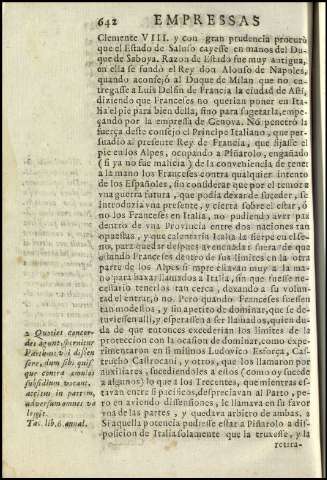 642 EMPRESSAS
Clemente VIII. y con gran prudencia procurò
que el Estado de Saluso cayesse en manos del Du-
que de Saboya. Razon de Estado fue muy antigua,
en ella se fundò el Rey don Alonso de Napoles,
quando aconsejò al Duque de Milan que no en-
tregasse a Luis Delfin de Francia la ciudad de Asti,
diziendo que Franceses no querian poner en Ita-
lia el pie para bien della, sino para sugetarla, empe-
çando por la empresa de Genova. No penetrò la
fuerça deste consejo el Principe Italiano, que per-
suadio al presente Rey de Francia, que fijasse el
pie en los Alpes, ocupando a Piñarolo, engañado
(si ya no fue malicia) de la conveniencia de tener
a la mano los Franceses contra qualquier intento
de los Españoles, sin considerar que por el temor a
vna guerra futura, que podia dexar de suceder, se
introduzia vna presente, y cierta sobre el estar, ò
no los Franceses en Italia, no pudiendo aver paz
dentro de vna Provincia entre dos naciones tan
opuestas, y que calentaria Italia la sierpe en el se-
no, para quedar despues avenenada: fuera de que
estando Franceses dentro de sus limites en la otra
parte de los Alpes siempre estavan muy a la ma-
no para baxar llamados a Italia, sin que fuesse ne-
cessario tenerlos tan cerca, dexando a su volun-
tad el entrar, ò no. Pero quando Franceses fuessen
tan modestos, y sin apetito de dominar, que se de-
tuviessen alli, y esperassen a ser llamados, quien du-
da de que entonces excederian los limites de la
proteccion con la ocasion de dominar, como expe-
rimentaron en si mismos Ludovico Esforça, Cas-
trucho Castrocani, y otros, que los llamaron por
auxiliares, sucediendoles a ellos (como oy sucede
a algunos) lo que a los Trecentes, que mientras es-
tavan entre si pacificos, despreciavan al Parto, pe-
ro en aviendo dissensiones, le llamava en su favor
vna de las partes, y quedava arbitro de ambas. 2
Si aquella potencia pudiesse estar a Piñarolo a dis-
posicion de Italia solamente que la truxesse, y la
retira-
2 Quoties concor-
des agunt, spernitur
Parthus: vbi dissen-
sere, dum sibi quis-
que contra æmulos
subsidium vocant,
accitus in partem,
adversum omnes va
lescit.
Tac. lib. 6. annal.